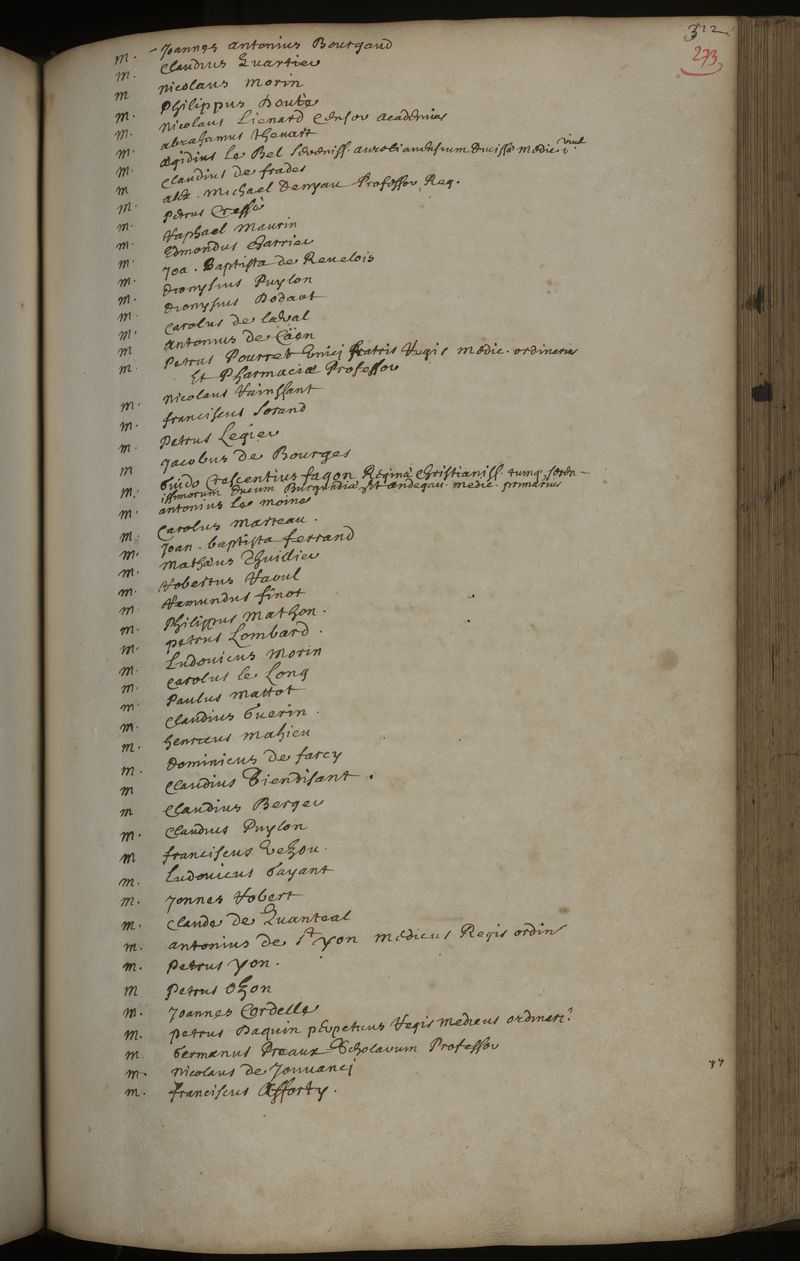 312
273
m. Joannes Antonius Bourgaud
m. Claudius Quartier
m Nicolaus Morin
m. Philippus Douté
m. Nicolaus Lienard Censor Academiæ
m. Abrahamus Thenart
m. Ægidius Le Bel Sereniss. Aurelianensium Ducissæ medic.
m Claudius de frades
m. Alex. Michael Denyau Professor Reg.
m. Petrus Cressé
m. Raphael Maurin
m. Edmondus Garrier
m. Joa. Baptista de Revelois
m. Dionysius Puylon
m. Dionysius Dodart
m. Carolus de Laval
m Antonius de Caen
m. Petrus Pourret Unici fratris Regis medic. ordinarius
Et Pharmaciæ Professor
m. Nicolaus Rainssant
m. franciscus Lorand
m. Petrus Legier
m Jacobus de Bourges
m. Guido Crescentius fagon Reginæ Christianiss. tumq. seren-
issimorum Ducum Burgundiæ Et Andegau. medic. primarius
m. Antonius Le Moine
m. Carolus Marteau.
m. Joan. baptista ferrand
m. Mathæus Thuillier
m. Robertus Raoul
m. Remundus finot
m. Philippus Mathon.
m. petrus Lombard.
m. Ludovicus Morin
m. Carolus le Long
m. Paulus Mattot
m. Claudius Guerin.
m. henricus Mahieu
m. Dominicus de farcy
m Claudius Biendisant.
m Claudius Berger
m. Claudius Puylon
m franciscus Vezou.
m. Ludovicus Gayant
m. Joannes Robert
m. Claude de Quanteal
m. Antonius de St Yon Medicus Regis ordin
m. Petrus Yon.
m Petrus Ozon
m. Joannes Cordelle
m. Petrus Daquin perpetuus Regis Medicus ordinari
m. Germanus Preaux Scholarum Professor
m. Nicolaus de Jouuancj
m. franciscus Afforty.